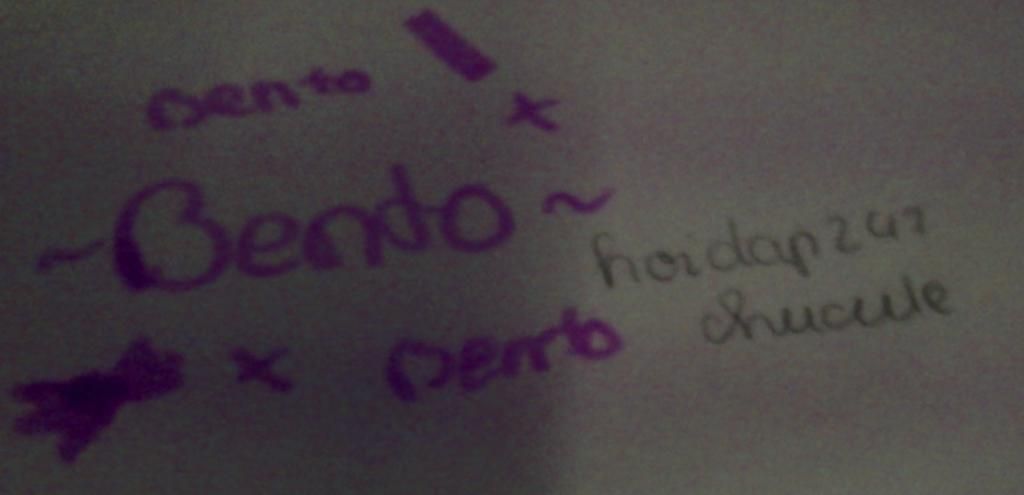 Bento
~Bento~
hoidap247
Bento